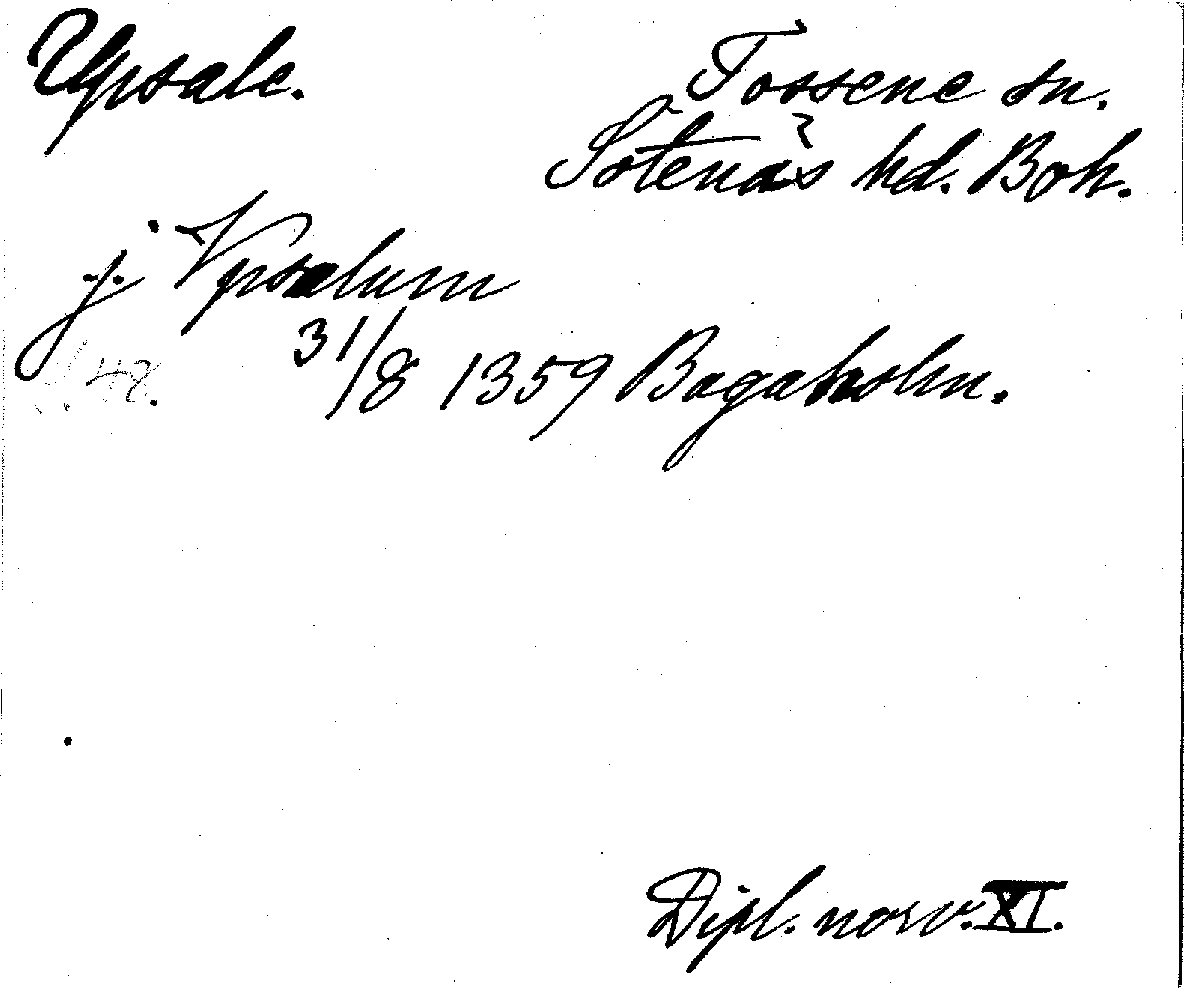 Upsale.
Tossene sn.
Sotenäs hd. Boh.
j. Ypsalum
31/8 1359 Bagaholm.
48.
Dipl. norv. XI.